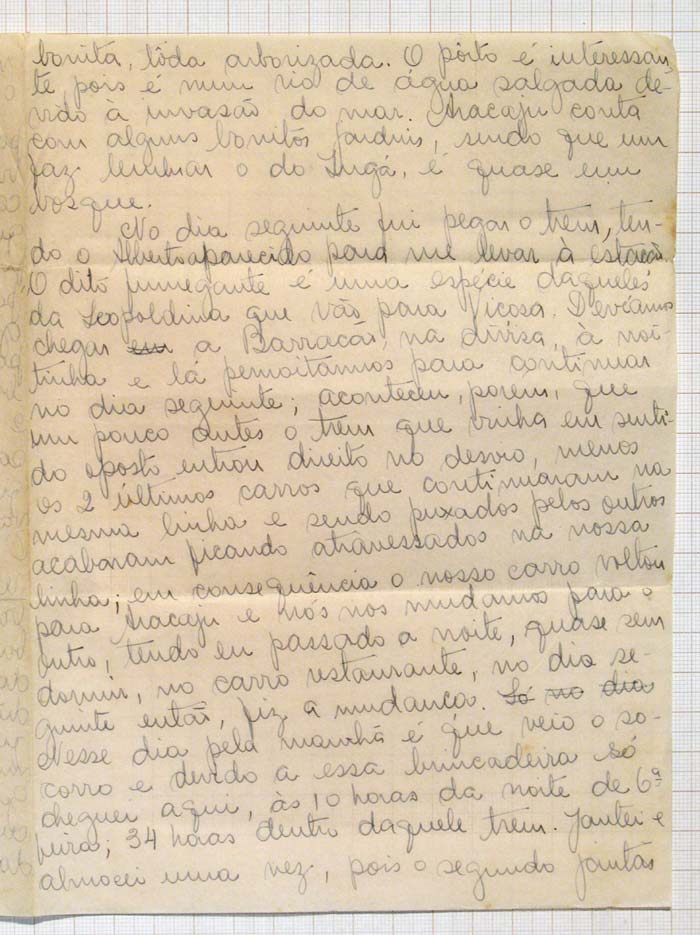 bonita, tôda arborizada. O pôrto é interessan-
te, pois é num rio de água salgada de-
vido à invasão do mar. Aracaju conta
com alguns bonitos jardins, sendo que um
faz lembrar o do Ingá, é quase um
bosque.
No dia seguinte fui pegar o trem, ten-
do o Alberto aparecido para me levar à estação.
O dito fumegante é uma espécie daqueles
da Leopoldina que vão para Viçosa. Devíamos
chegar em a Barracão, na divisa, à noi-
tinha e lá pernoitarmos para continuar
no dia seguinte; aconteceu, porem, que
um pouco antes o trem que vinha em senti-
do oposto entrou direito no desvio, menos
os 2 últimos carros que continuaram na
mesma linha e sendo puxados pelos outros
acabaram ficando atravessados na nossa
linha; em consequência o nosso carro voltou
para Aracaju e nós nos mudamos para o
outro, tendo eu passado a noite, quase sem
dormir, no carro restaurante, no dia se-
guinte então, fiz a mudança. Só no dia
Nesse dia pela manhã é que veio o so-
corro e devido a essa brincadeira só
cheguei aqui, às 10 horas da noite de 6ª
feira; 34 horas dentro daquele trem. Jantei e
almocei uma vez, pois o segundo jantar